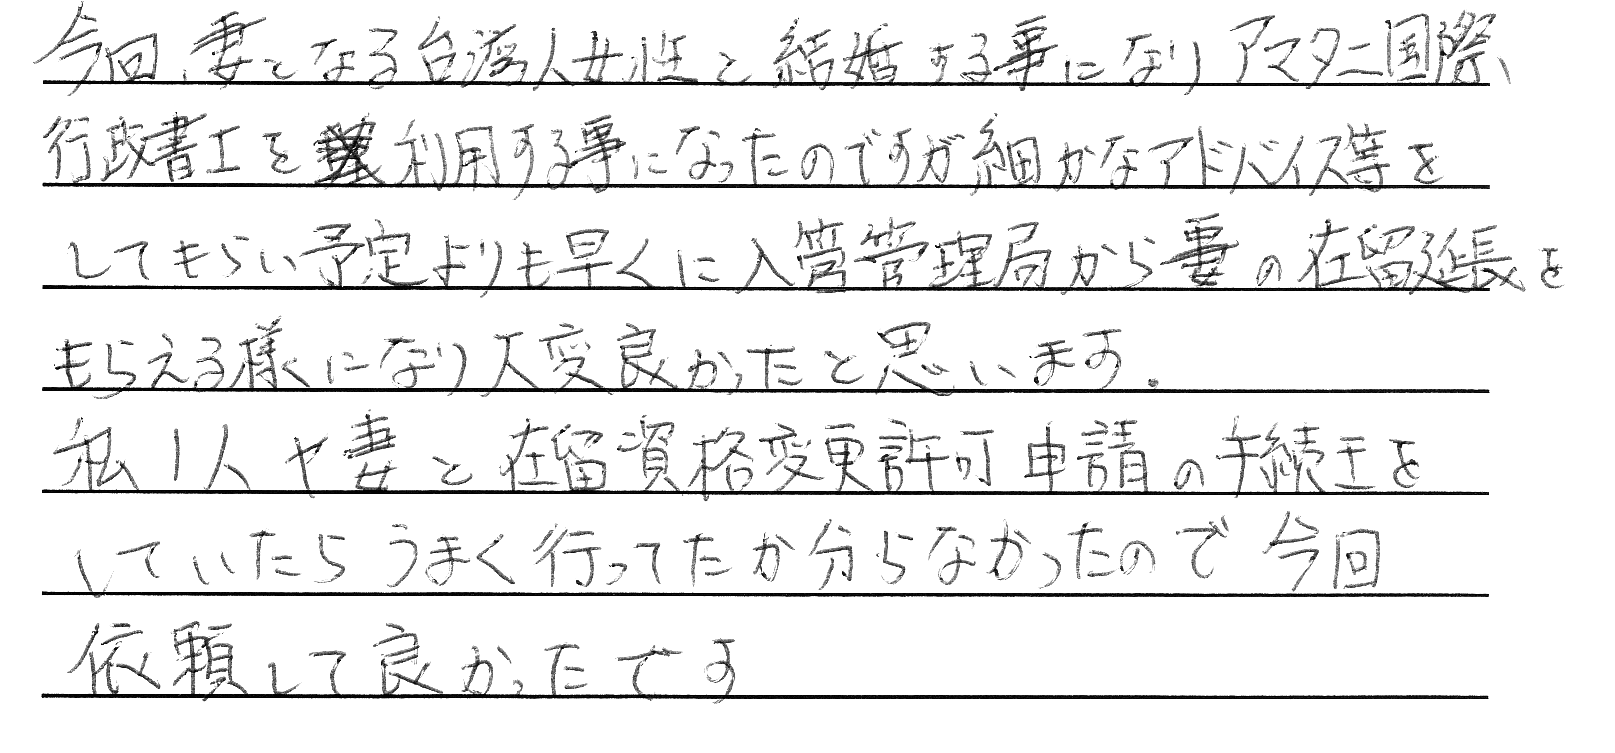 今回、妻となる台湾人女性と結婚する事になりアマタニ国際、
行政書士を利用する事になったのですが細かなアドバイス等を
してもらい予定よりも早くに入管管理局から妻の在留延長を
もらえる様になり大変良かったと思います。
私1人や妻と在留資格変更許可申請の手続王を
していたらうまく行ってたか分らなかったので今回
依頼して良かったです